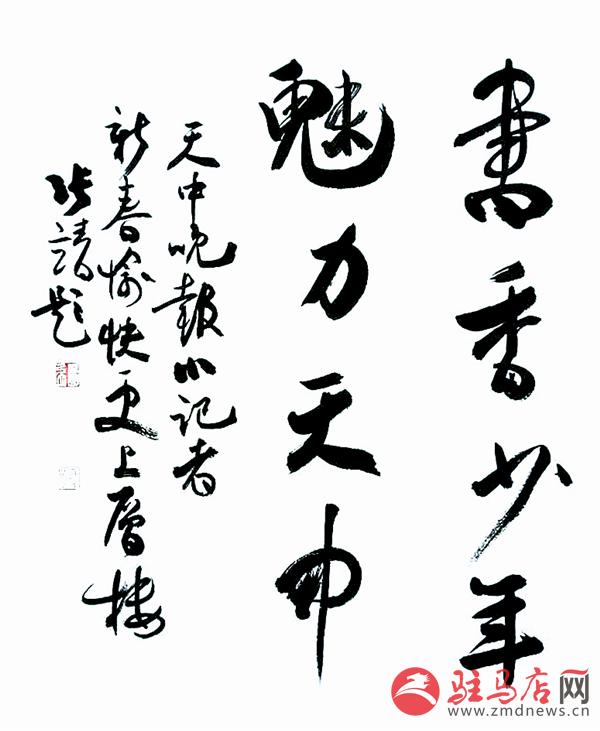 書香少年
魅力天中
天中晚報小记者
新春愉快更上層楼
张靖题
驻马店网
www.zmdnews.cn